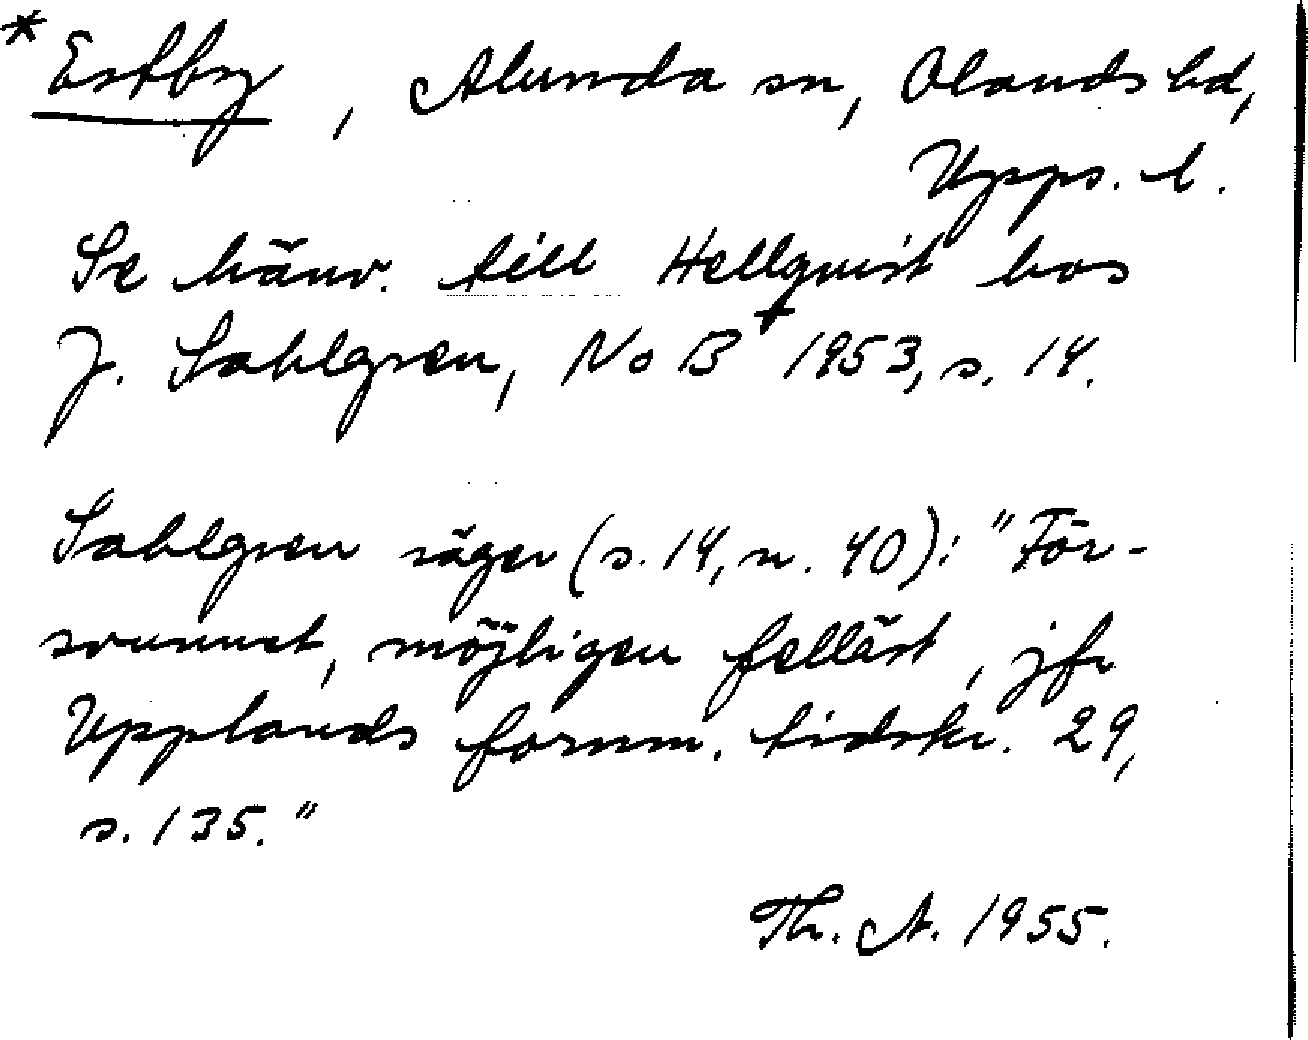 * Estby, Alunda sn, Olands hd,
Upps. l.
Se hänv. till Hellquist hos
J. Sahlgren, NoB 1953, s. 14.
Sahlgren säger (s. 14, n. 40): "För-
svunnet, möjligen felläst, jfr
Upplands fornm. tidskr. 29,
s. 135."
Th. A. 1955.